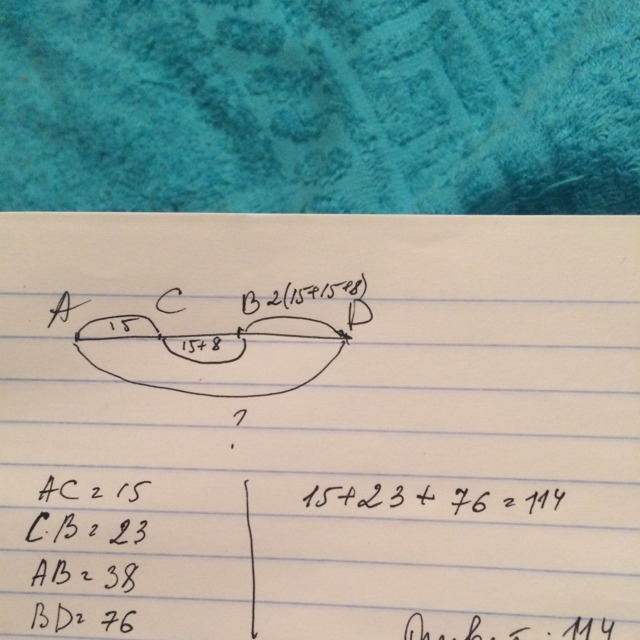 A C B 2(15+15+8) D
15
15+8
?
AC = 15
CB = 23
AB = 38
BD = 76
15+23+76=114
Ответ: 114